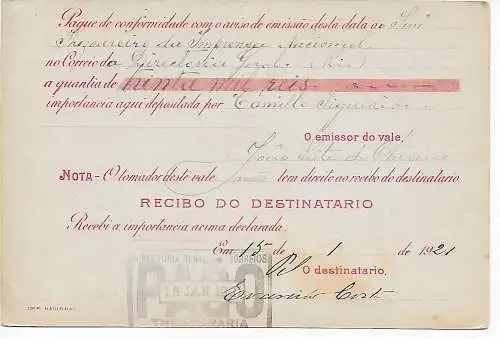 Pague de conformidade com o aviso de emissão desta data ao Snr
Thesoureiro da Imprensa Nacional
no Correio da Directoria Geral (Rio)
a quantia de trinta mil reis
importancia aqui depositada por Camillo
O emissor do vale,
João Leite de
NOTA - O tomador deste vale tem direito ao recibo do destinatario.
RECIBO DO DESTINATARIO
Recebi a importancia acima declarada.
Em 15 de 1 de 1921
O destinatario,
PAGO